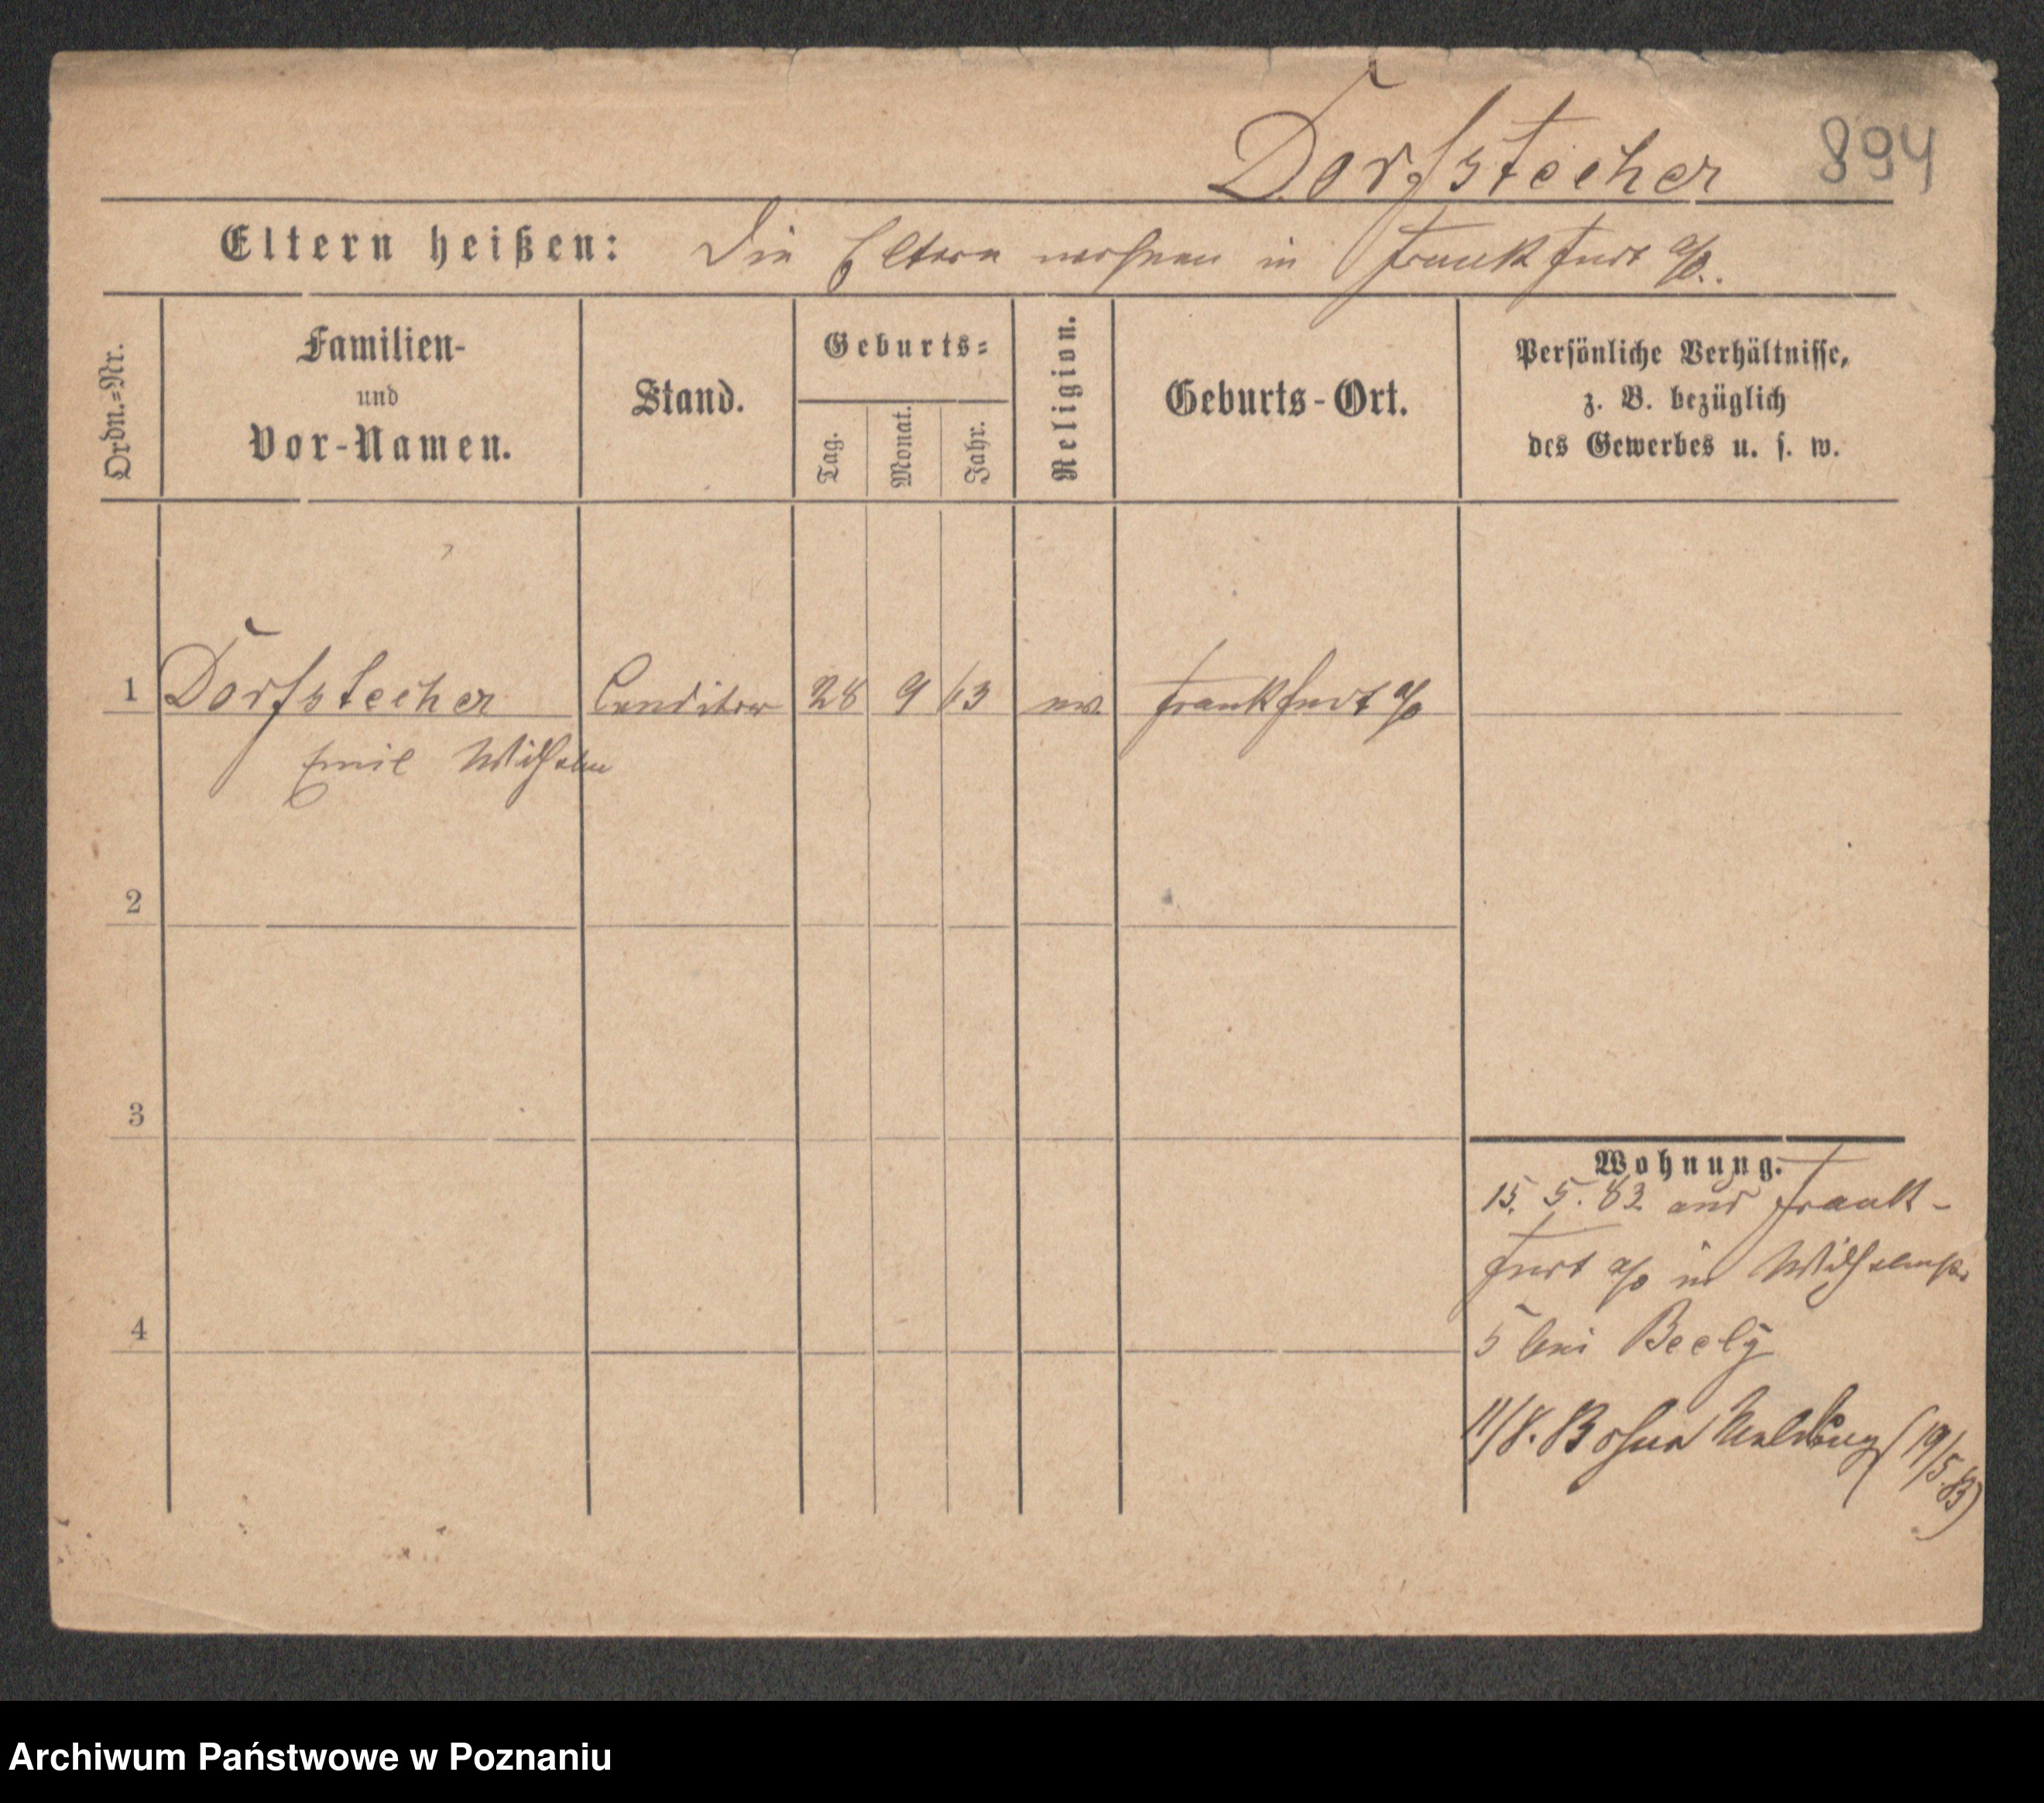 Dorfstecher 894
Eltern heißen: Die Eltern wohnen in Frankfurt a/O.
Ordn.=Nr.
Familien-
und
Vor-Namen.
Stand.
Geburts=
Tag.
Monat.
Jahr.
Religion.
Geburts-Ort.
Persönliche Verhältnisse,
z. B. bezüglich
des Gewerbes u. s. w.
1 Dorfstecher Conditor 28 9 63 ev. Frankfurt a/O
Emil Wilhelm
2
3
4
Wohnung.
15. 5. 83 aus Frank-
furt a/O in Wilhelmstr.
5 bei Beely
11/8. 83 ohne Meldung (19/5. 83)
Archiwum Państwowe w Poznaniu